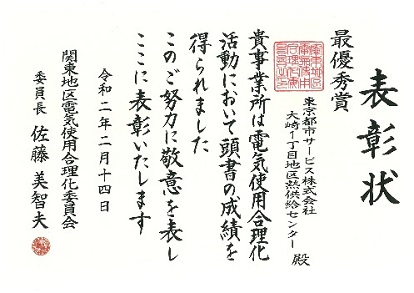 表彰状
最優秀賞
東京都市サービス株式会社
大崎1丁目地区熱供給センター 殿
貴事業所は電気使用合理化
活動において頭書の成績を
得られました
このご努力に敬意を表し
ここに表彰いたします
令和二年二月十四日
関東地区電気使用合理化委員会
委員長 佐藤美智夫